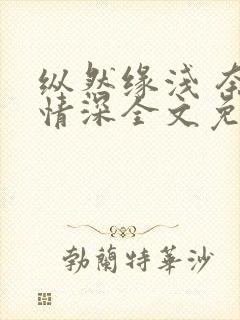 纵然缘浅 奈
情深全文免
勃蘭特華沙